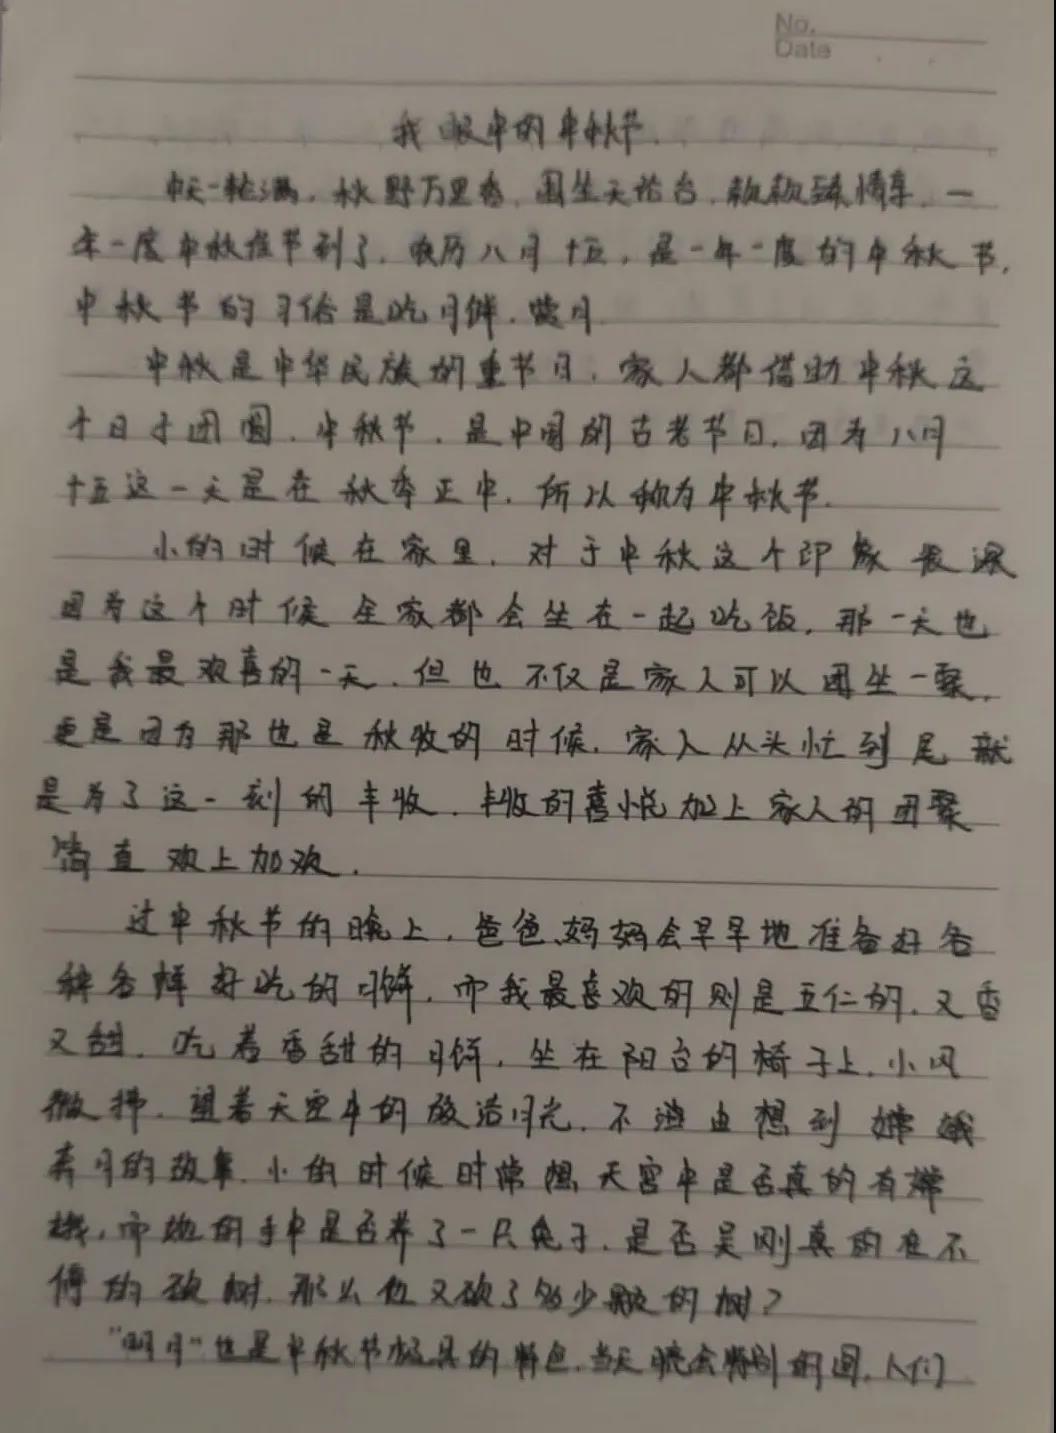 No.
Date
我眼中的中秋节
中天一轮满，秋野万里香，围坐天论台，款款臻情享，一
年一度中秋佳节到了，农历八月十五，是一年一度的中秋节，
中秋节的习俗是吃月饼，赏月
中秋是中华民族的重节日，家人都借助中秋这
个日子团圆，中秋节，是中国的古老节日，因为八月
十五这一天是在秋季正中，所以称为中秋节。
小的时候在家里，对于中秋这个印象很深
因为这个时候全家都会坐在一起吃饭，那一天也
是我最欢喜的一天，但也不仅是家人可以团坐一聚，
更是因为那也是秋收的时候，家人从头忙到尾就
是为了这一刻的丰收，丰收的喜悦加上家人的团聚
简直欢上加欢。
过中秋节的晚上，爸爸、妈妈会早早地准备好各
种各样好吃的月饼，而我最喜欢的则是五仁的，又香
又甜，吃着香甜的月饼，坐在阳台的椅子上，小风
微拂，望着天空中的皎洁月光，不禁由想到嫦娥
奔月的故事，小的时候时常想天宫中是否真的有嫦
娥，而她的手中是否养了一只兔子，是否吴刚真的在不
停的砍树，那么他又砍了多少颗的树？
"明月"也是中秋节极具的特色，当天晚会特别的圆，人们